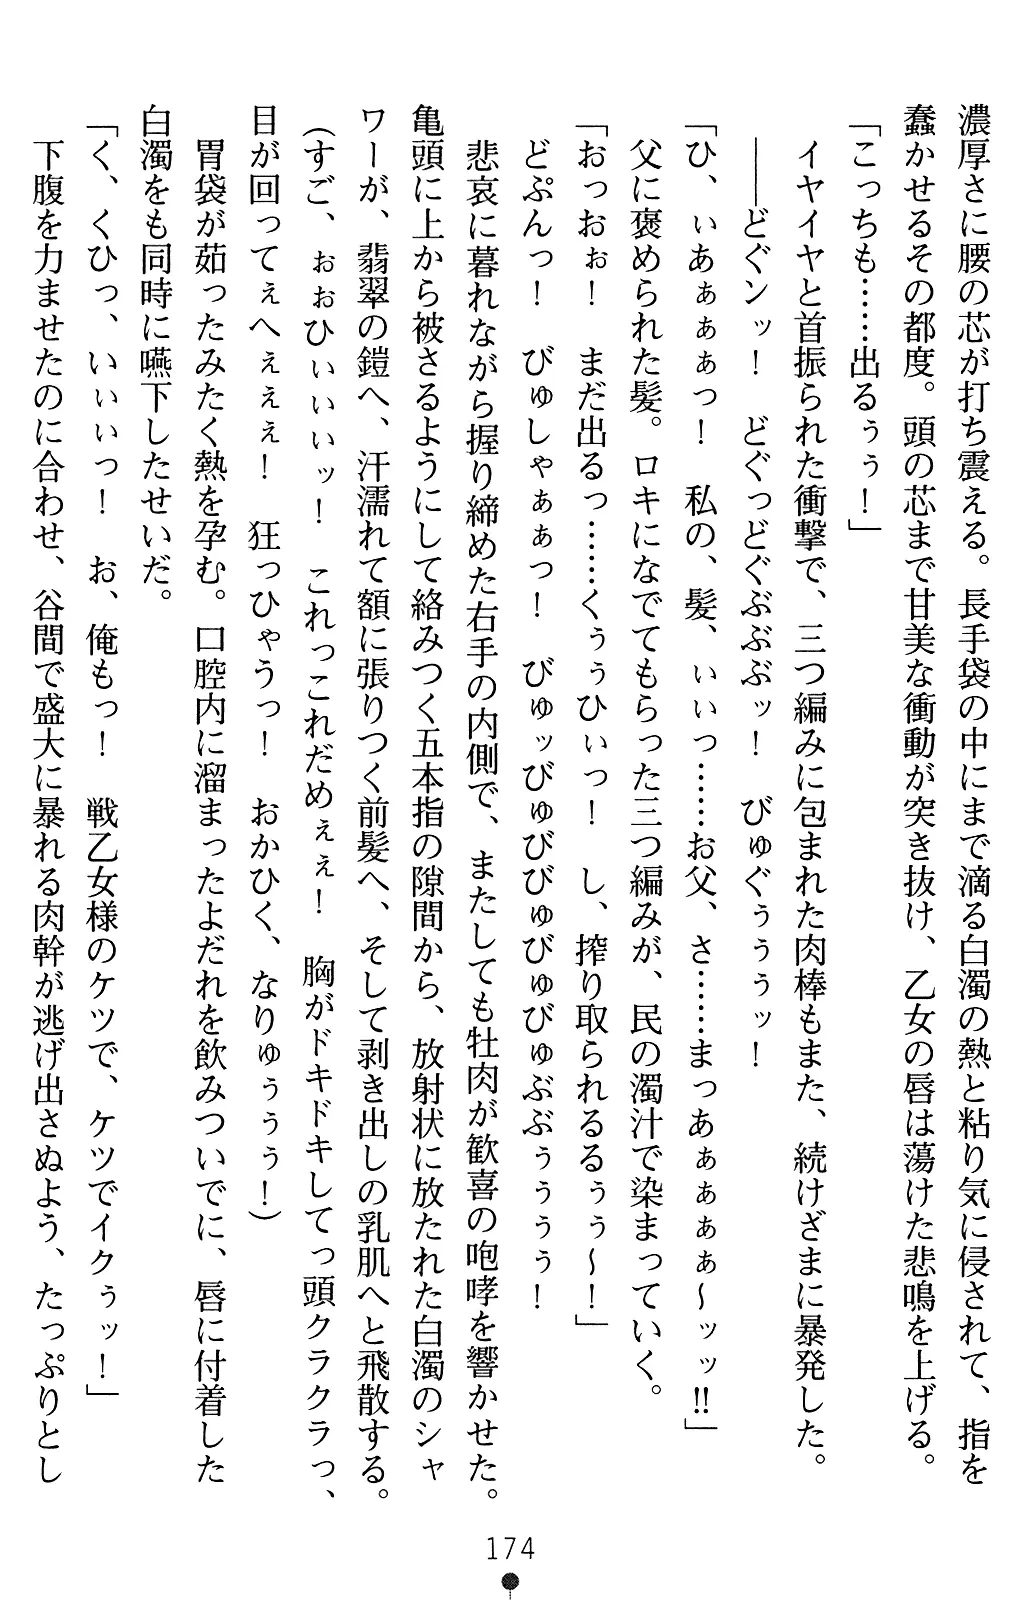 濃厚さに腰の芯が打ち震える。長手袋の中にまで滴る白濁の熱と粘り気に侵されて、指を
蠢かせるその都度。頭の芯まで甘美な衝動が突き抜け、乙女の唇は蕩けた悲鳴を上げる。
「こっちも……出るぅぅ！」
イヤイヤと首振られた衝撃で、三つ編みに包まれた肉棒もまた、続けざまに暴発した。
――どぐンッ！　どぐっどぐぶぶぶッ！　びゅぐぅぅぅッ！
「ひ、ぃあぁぁぁっ！　私の、髪、ぃぃっ……お父、さ……まっあぁぁぁぁ～ッッ!!」
父に褒められた髪。ロキになでてもらった三つ編みが、民の濁汁で染まっていく。
「おっおぉ！　まだ出るっ……くぅぅひぃっ！　し、搾り取られるるぅぅ～！」
どぷんっ！　びゅしゃぁぁっ！　びゅッびゅびびゅびゅびゅぶぶぅぅぅぅ！
悲哀に暮れながら握り締めた右手の内側で、またしても牡肉が歓喜の咆哮を響かせた。
亀頭に上から被さるようにして絡みつく五本指の隙間から、放射状に放たれた白濁のシャ
ワーが、翡翠の鎧へ、汗濡れて額に張りつく前髪へ、そして剥き出しの乳肌へと飛散する。
(すご、ぉぉひぃぃぃッ！　これっこれだめぇぇ！　胸がドキドキしてっ頭クラクラっ、
目が回ってぇへぇぇぇ！　狂っひゃうっ！　おかひく、なりゅぅぅぅ！)
胃袋が茹ったみたく熱を孕む。口腔内に溜まったよだれを飲みついでに、唇に付着した
白濁をも同時に嚥下したせいだ。
「く、くひっ、いぃぃっ！　お、俺もっ！　戦乙女様のケツで、ケツでイクぅッ！」
下腹を力ませたのに合わせ、谷間で盛大に暴れる肉幹が逃げ出さぬよう、たっぷりとし
174